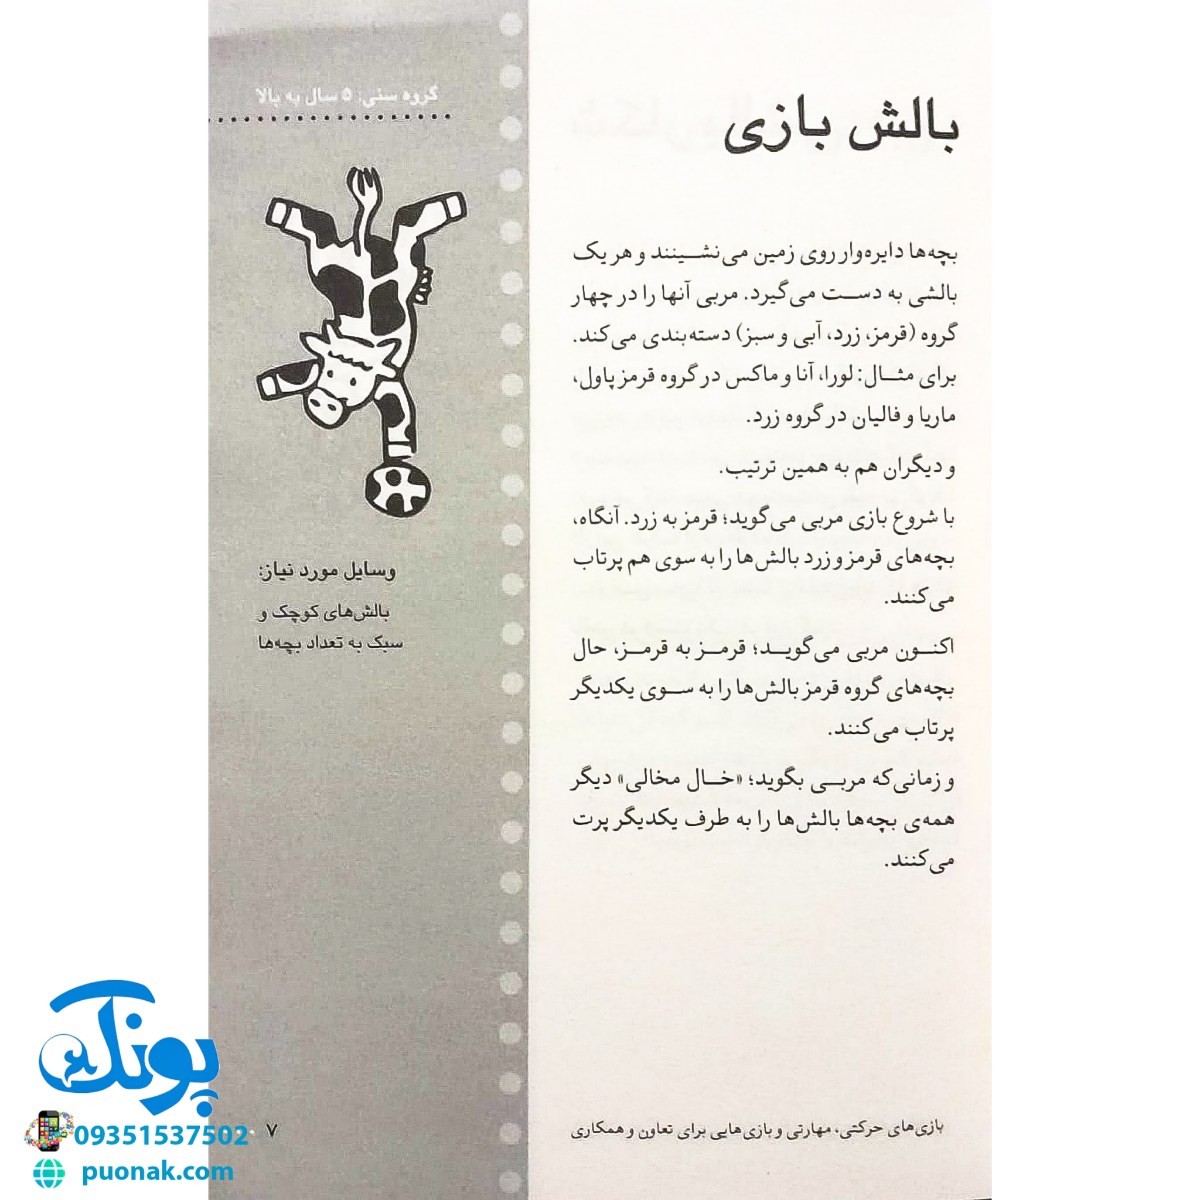 بالش بازی
بچه‌ها دایره‌وار روی زمین می‌نشینند و هر یک
بالشی به دست می‌گیرد. مربی آنها را در چهار
گروه (قرمز، زرد، آبی و سبز) دسته‌بندی می‌کند.
برای مثال: لورا، آنا و ماکس در گروه قرمز پاول،
ماریا و فالیان در گروه زرد.
و دیگران هم به همین ترتیب.
با شروع بازی مربی می‌گوید؛ قرمز به زرد. آنگاه،
بچه‌های قرمز و زرد بالش‌ها را به سوی هم پرتاب
می‌کنند.
اکنون مربی می‌گوید؛ قرمز به قرمز، حال
بچه‌های گروه قرمز بالش‌ها را به سوی یکدیگر
پرتاب می‌کنند.
و زمانی‌که مربی بگوید؛ «خال مخالی» دیگر
همه‌ی بچه‌ها بالش‌ها را به طرف یکدیگر پرت
می‌کنند.
بازی‌های حرکتی، مهارتی و بازی‌هایی برای تعاون و همکاری
گروه سنی: ۵ سال به بالا
وسایل مورد نیاز:
بالش‌های کوچک و
سبک به تعداد بچه‌ها
۷
پونک
09351537502
puonak.com